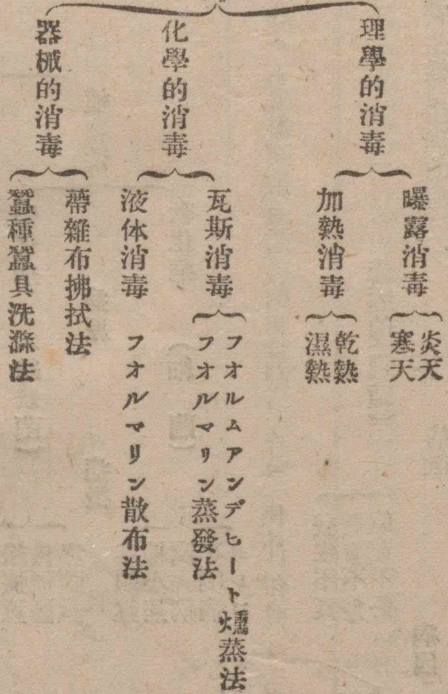 理學的消毒
曝露消毒
炎天
寒天
加熱消毒
乾熱
濕熱
化學的消毒
瓦斯消毒
フオルムアンデヒート燻蒸法
フオルマリン蒸發法
液体消毒
フオルマリン散布法
器械的消毒
帚雜布拂拭法
蠶種蠶具洗滌法